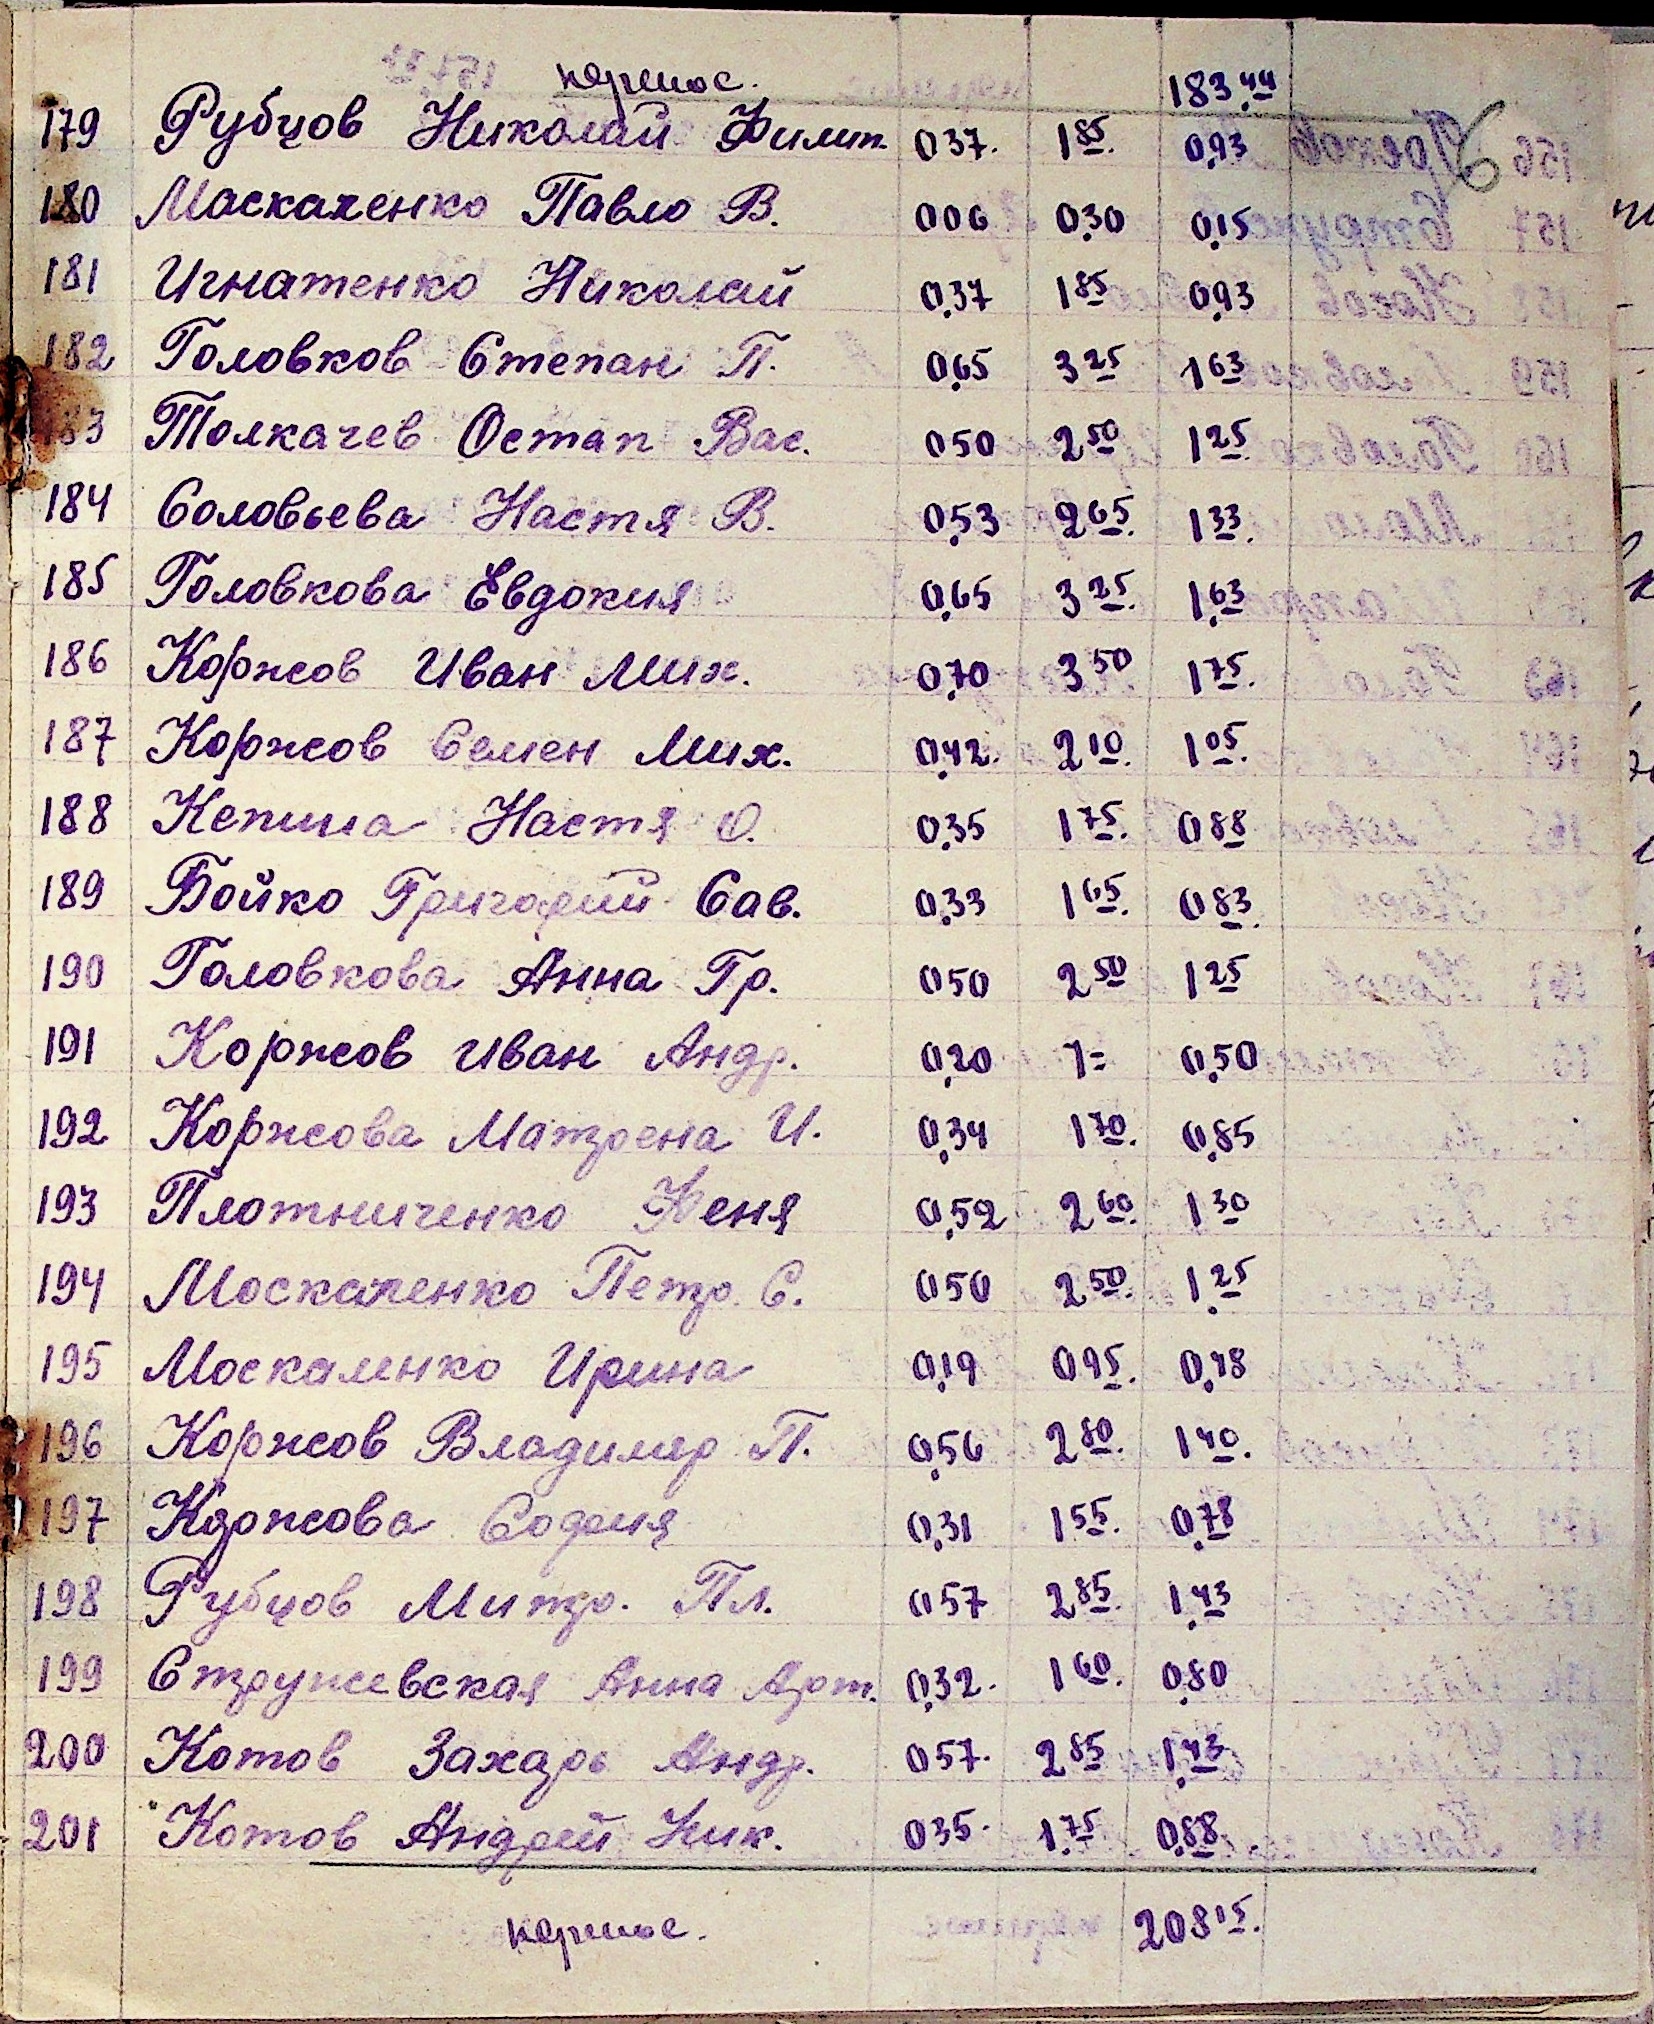 перенос. 183.44
179 Рубцов Николай Филип. 0,37. 1 85. 0,93
180 Маскаленко Павло В. 006 0,30 0,15
181 Игнатенко Николай 0,37 1 85 0,93
182 Головков Степан П. 0,65 3 25 1 63
183 Толкачев Остап Вас. 050 2 50 1 25
184 Соловьева Настя В. 0,53 2 65. 1 33.
185 Головкова Евдокия 0,65 3 25. 1,63
186 Коржов Иван Мих. 0,70 3 50 1 75.
187 Коржов Семен Мих. 0,42. 2 10. 1 05.
188 Кепша Настя О. 0,35 1 75. 0 88
189 Бойко Григорий Сав. 0,33 1 65. 0 83.
190 Головкова Анна Гр. 050 2 50 1 25
191 Коржов Иван Андр. 0,20 1= 0,50
192 Коржова Матрена И. 0,34 1 70. 0,85
193 Плотниченко Феня 0,52 2 60. 1 30
194 Москаленко Петр. С. 050 2 50. 1,25
195 Москаленко Ирина 0,19 0 95. 0,48
196 Коржов Владимир П. 0,56 2 80. 1 40.
197 Коржова София 0,31 1 55. 0,78
198 Рубцов Митр. Пл. 057 2 85. 1,43
199 Стружевская Анна Арт. 0,32. 1 60. 0,80
200 Котов Захарь Андр. 057. 2 85 1,43
201 Котов Андрей Ник. 035. 1,75 0,88.
перенос. 208 15.